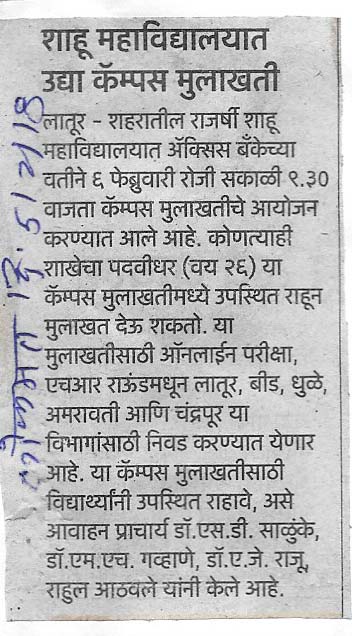 शाहू महाविद्यालयात
उद्या कॅम्पस मुलाखती
लातूर - शहरातील राजर्षी शाहू
महाविद्यालयात ॲक्सिस बँकेच्या
वतीने ६ फेब्रुवारी रोजी सकाळी ९.३०
वाजता कॅम्पस मुलाखतीचे आयोजन
करण्यात आले आहे. कोणत्याही
शाखेचा पदवीधर (वय २६) या
कॅम्पस मुलाखतीमध्ये उपस्थित राहून
मुलाखत देऊ शकतो. या
मुलाखतीसाठी ऑनलाईन परीक्षा,
एचआर राऊंडमधून लातूर, बीड, धुळे,
अमरावती आणि चंद्रपूर या
विभागांसाठी निवड करण्यात येणार
आहे. या कॅम्पस मुलाखतीसाठी
विद्यार्थ्यांनी उपस्थित राहावे, असे
आवाहन प्राचार्य डॉ.एस.डी. साळुंके,
डॉ.एम.एच. गव्हाणे, डॉ.ए.जे. राजू,
राहुल आठवले यांनी केले आहे.
लोकमत दि. 5/2/18